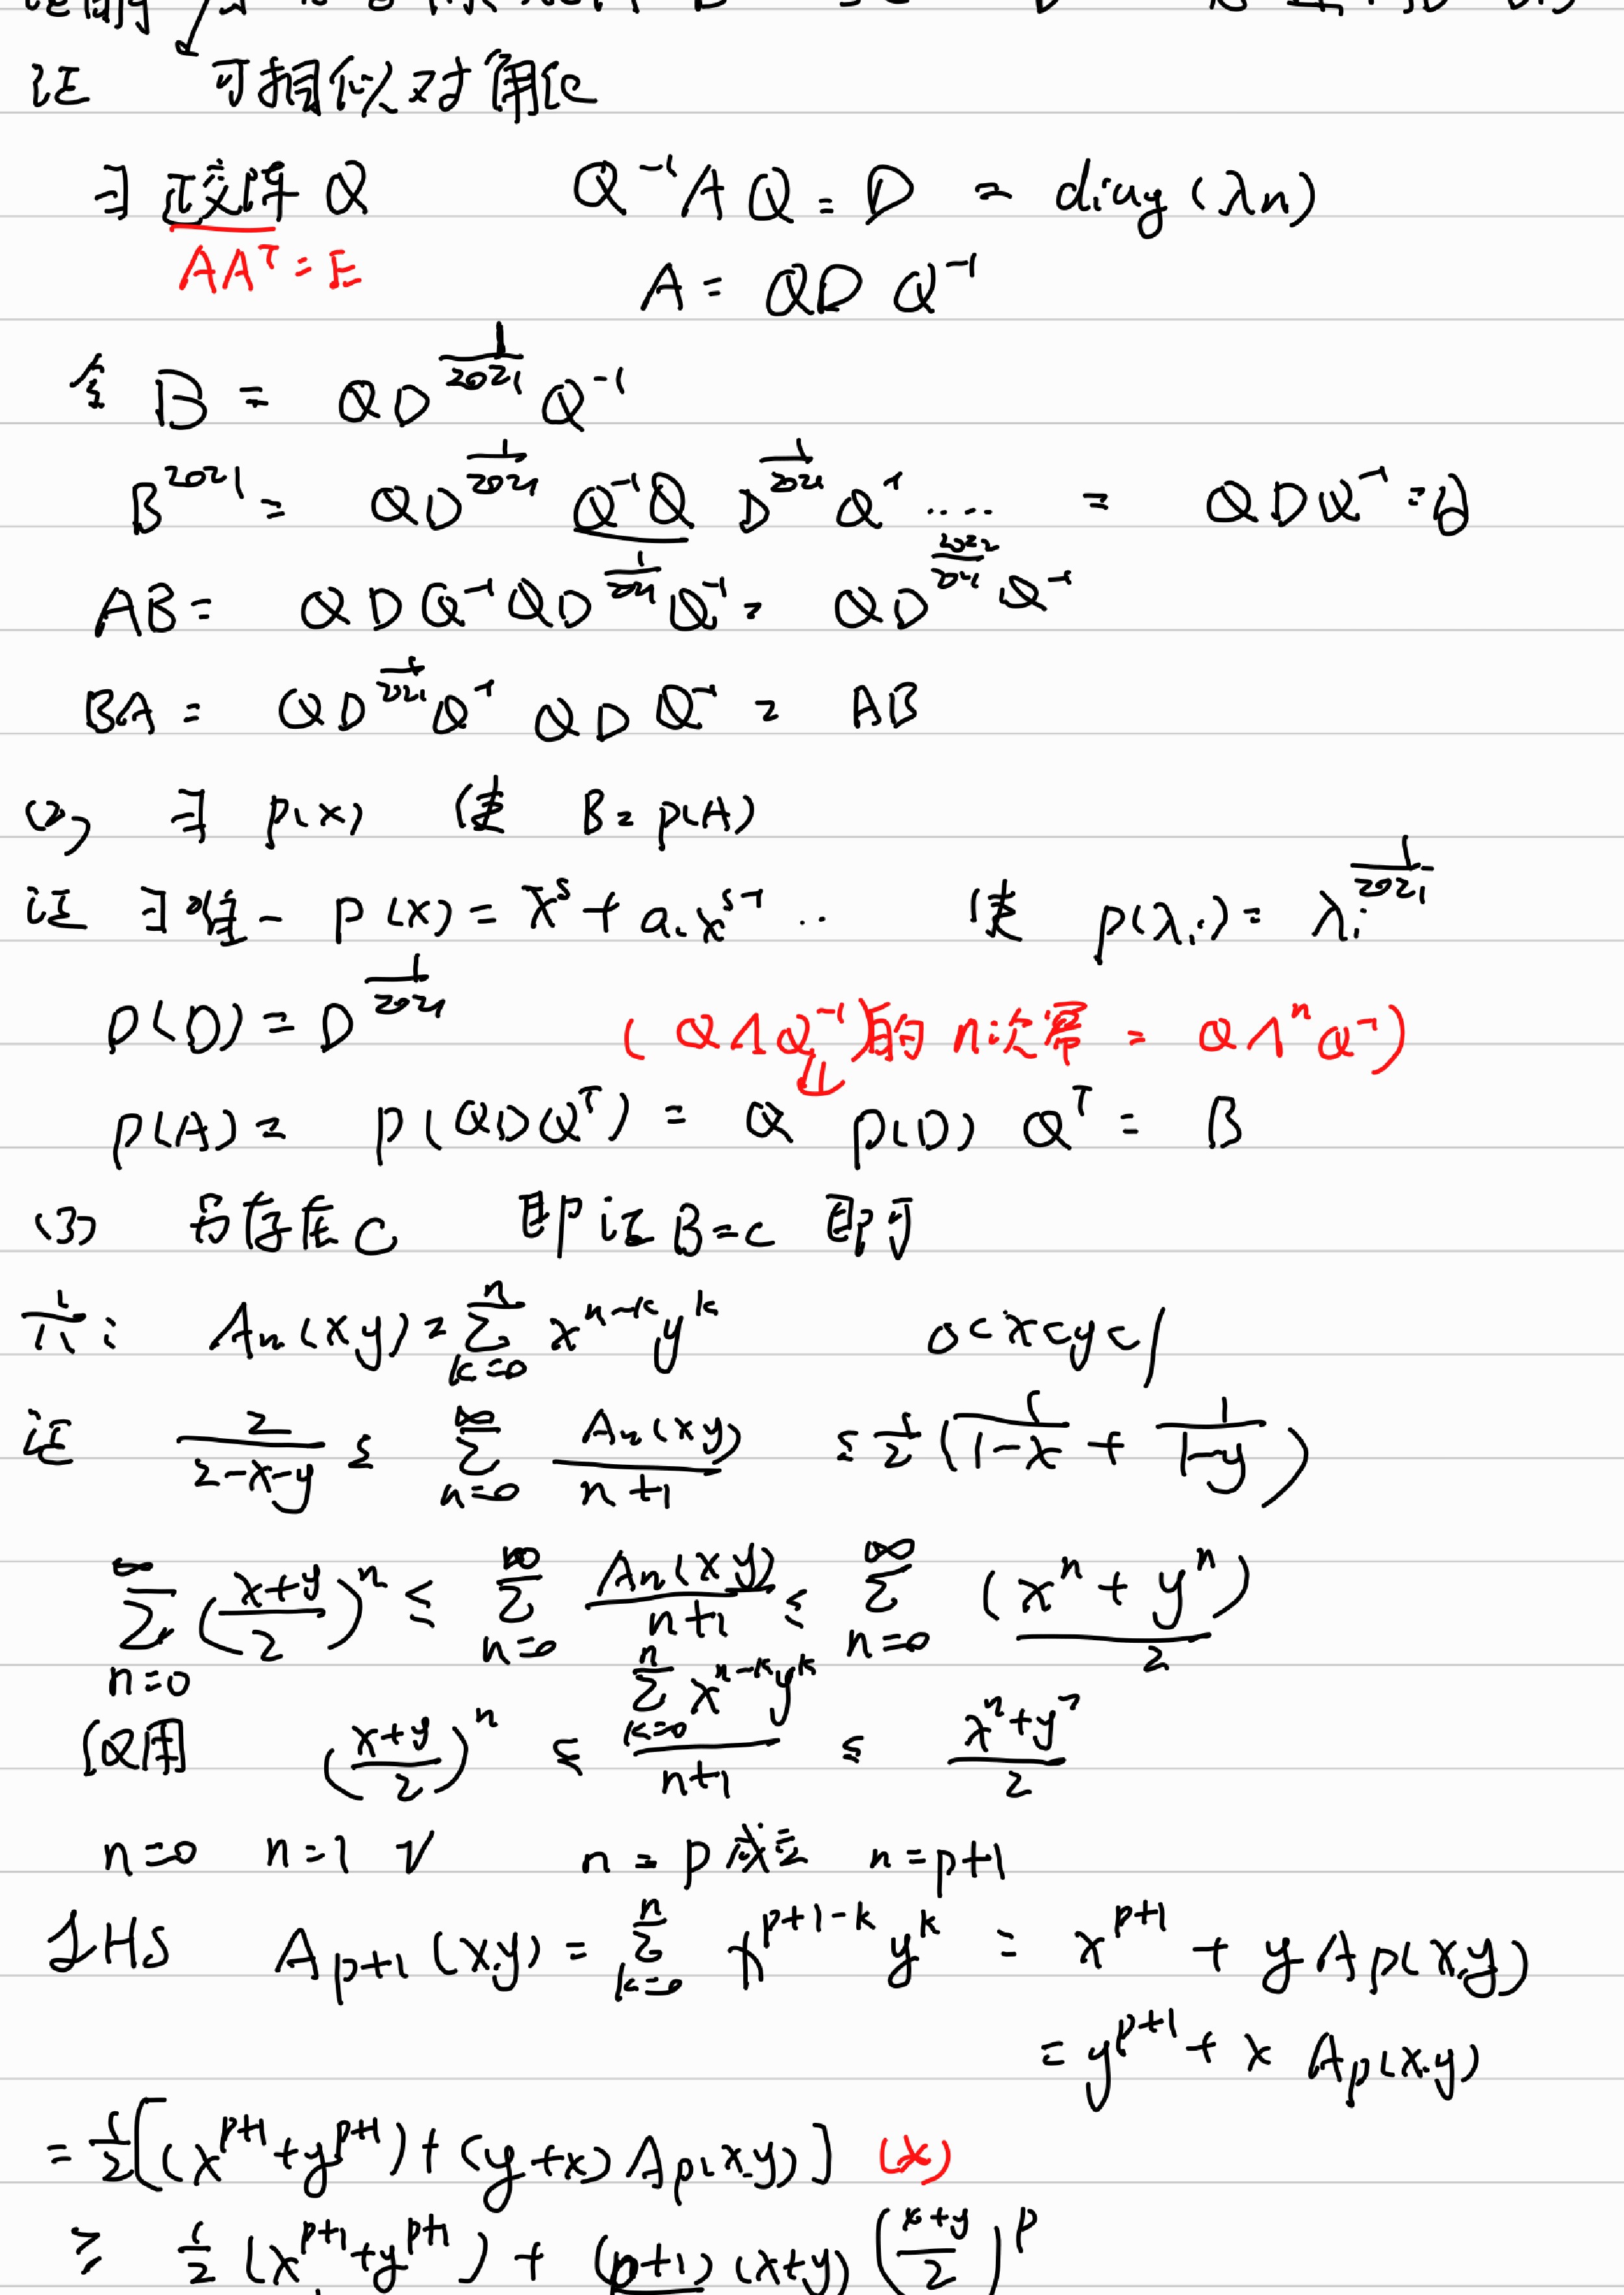 证 可相似对角化
∃ 正交阵 Q Q^{-1}AQ = D = diag(λn)
AA^T = E A = QDQ^{-1}
令 B = QD^{\frac{1}{2021}}Q^{-1}
B^{2021} = QD^{\frac{1}{2021}} Q^{-1}Q D^{\frac{1}{2021}} Q^{-1} ..... = QDQ^{-1} =
AB = QDQ^{-1}QD^{\frac{1}{2021}}Q^{-1} = QD^{\frac{2022}{2021}}Q^{-1}
BA = QD^{\frac{1}{2021}}Q^{-1} QDQ^{-1} = AB
(2) ∃ p(x) 使 B = p(A)
证 ∃唯一 p(x) = x^s + a_1x^{s-1} .. 使 p(λ_i) = λ_i^{\frac{1}{2021}}
p(D) = D^{\frac{1}{2021}} (QΛQ^{-1})的n次幂 = QΛ^nQ^{-1})
⇓
p(A) = p(QDQ^T) = Q p(D) Q^T = B
(3) 另存在C 即证B=C 即可
六: An(xy) = \sum_{k=0}^{n} x^{n-k}y^k 0<x<y<1
证 \frac{2}{2-x-y} ≤ \sum_{n=0}^{∞} \frac{An(xy)}{n+1} ≤ \frac{1}{2}(\frac{1}{1-x} + \frac{1}{1-y})
\sum_{n=0}^{∞} (\frac{x+y}{2})^n ≤ \sum_{n=0}^{∞} \frac{An(xy)}{n+1} ≤ \sum_{n=0}^{∞} \frac{(x^n+y^n)}{2}
仅用 (\frac{x+y}{2})^n ≤ \frac{\sum_{k=0}^{n} x^{n-k}y^k}{n+1} ≤ \frac{x^n+y^n}{2}
n=0 n=1 √ n=p成立 n=p+1
LHS A_{p+1}(x.y) = \sum_{k=0}^{n} x^{p+1-k}y^k = x^{p+1} + yAp(x.y)
= y^{p+1} + x Ap(x.y)
= \frac{1}{2}[(x^{p+1}+y^{p+1}) + (y+x)Ap(x.y)] (*)
≥ \frac{1}{2}(x^{p+1}+y^{p+1}) + (p+1)(x+y)(\frac{x+y}{2})^p